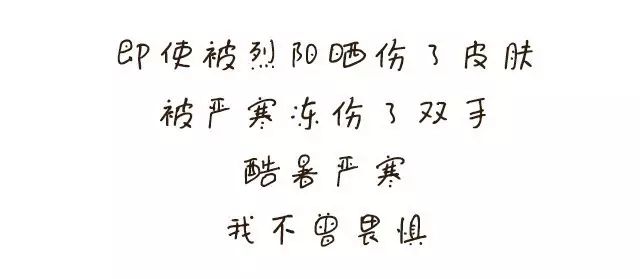 即使被烈阳晒伤了皮肤
被严寒冻伤了双手
酷暑严寒
我不曾畏惧